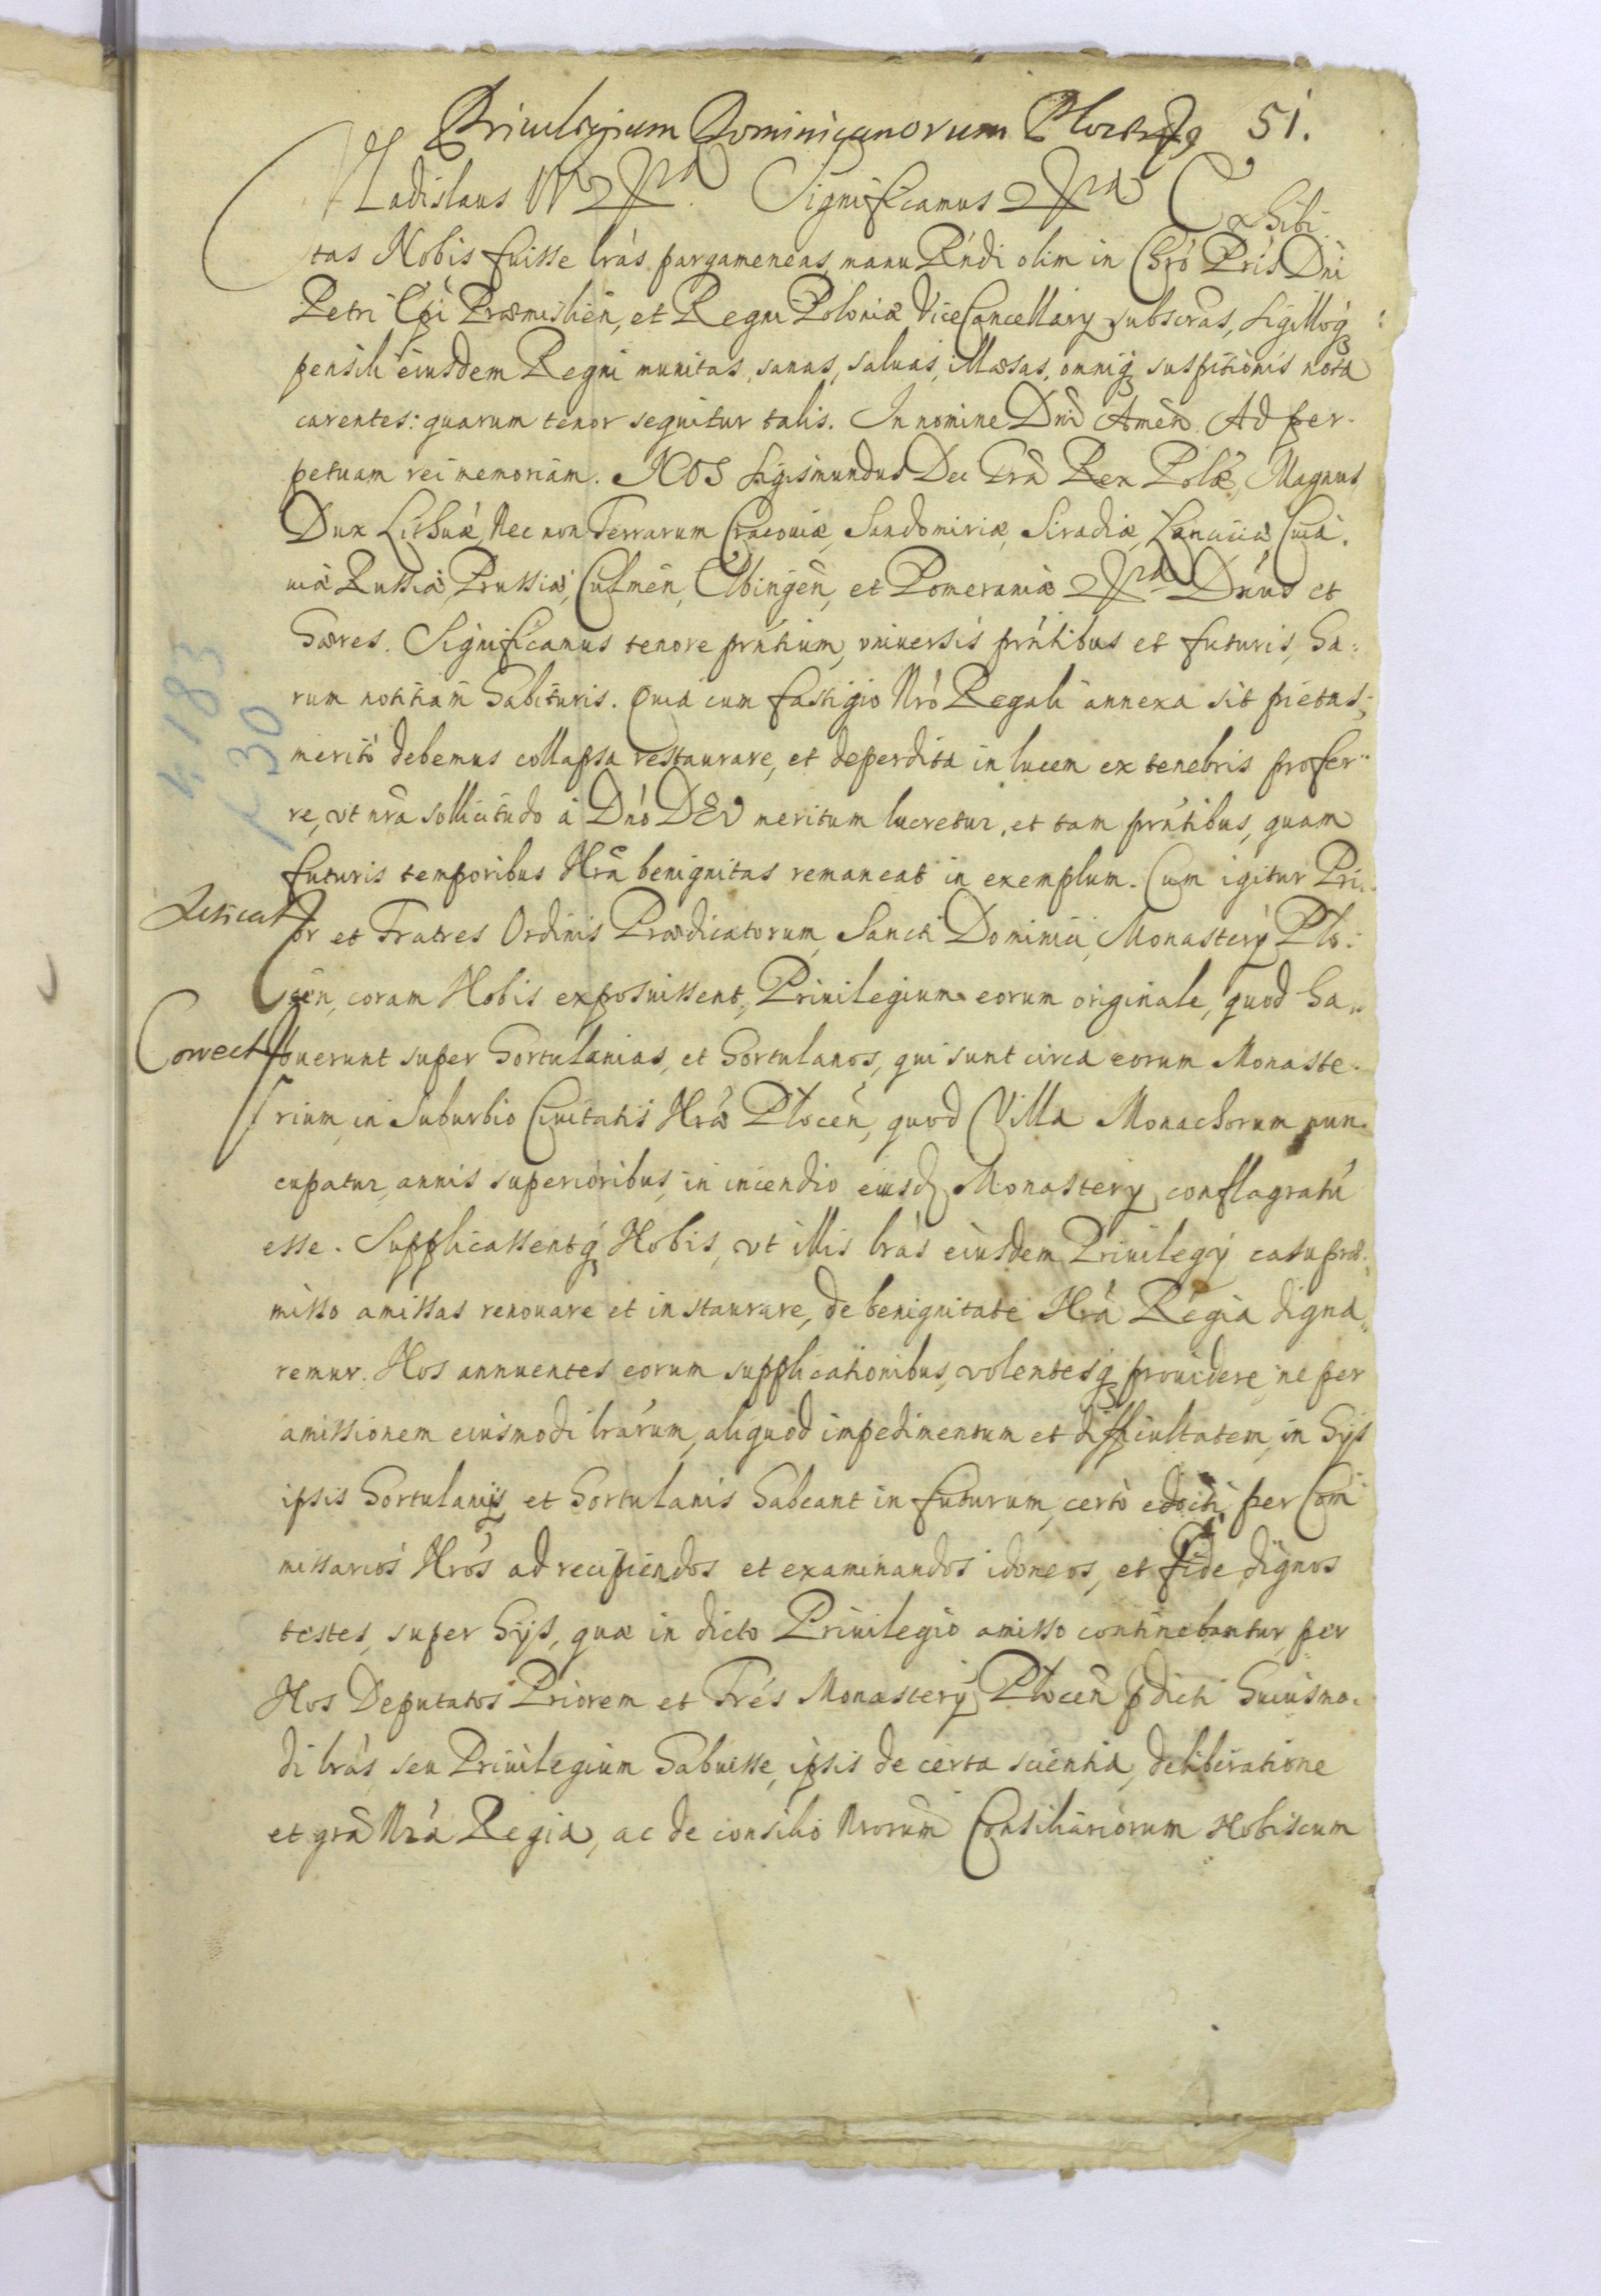 Priuilegium Dominicanorum Plocens 51.
Vladislaus IV etc. Significamus etc. Exhibi-
tas Nobis fuisse lrás pargameneas manu Rńdi olim in Chrô Pris Dni
Petri Epi Præmislień, et Regni Poloniæ ViceCancellarÿ subscras, sigilloq
pensili eiusdem Regni munitas, sanas, saluas, illæsas, omniq suspitionis nota
carentes: quarum tenor sequitur talis. In nomine Dni Amen. Ad per-
petuam rei memoriam. NOS Sigismundus Dei Grâ Rex Polæ, Magnus
Dux Lithuæ, Nec non Terrarum Cracouiæ, Sandomiriæ, Siradiæ, Lanciciæ Cuia-
uiæ Russiæ, Prussiæ, Culmeń, Elbingeń, et Pomeraniæ etc. Dńus et
Hæres. Significamus tenore prńtium, vniuersis prńtibus et futuris, ha-
rum notitiam habituris. Quia cum fastigio Nrô Regali annexa sit pietas,
meritò debemus collapsa restaurare, et deperdita in lucem ex tenebris profer-
re, vt nrâ sollicitudo à Dńo DEO meritum lucretur, et tam prńtibus, quam
futuris temporibus Nrâ benignitas remaneat in exemplum. Cum igitur Pri-
or et Fratres Ordinis Prædicatorum, Sancti Dominici, Monasterÿ Plo-
ceń, coram Nobis exposuissent, Priuilegium eorum originale, quod ha-
Correct
buerunt super Hortulanias, et Hortulanos, qui sunt circa eorum Monaste-
rium, in Suburbio Ciuitatis Nræ Ploceń, quod Villa Monachorum nun-
cupatur, annis superioribus, in incendio eiusd Monasterÿ conflagratû
esse. Supplicassentq Nobis, vt illis lrás eiusdem Priuilegÿ casu præ-
misso amissas renouare et instaurare, de benignitate Nrâ Regia digna-
remur. Nos annuentes eorum supplicationibus, volentesq prouidere, ne per
amissionem eiusmodi lrárum, aliquod impedimentum et difficultatem, in hÿs
ipsis Hortulanÿs, et Hortulanis habeant in futurum, certò edocti, per Com-
missarios Nrós ad recipiendos et examinandos idoneos, et fide dignos
testes, super hÿs, quæ in dicto Priuilegio amisso continebantur, per
Nos Deputatos Priorem et Frés Monasterÿ Ploceń pdicti huiusmo-
di lrás seu Priuilegium habuisse, ipsis de certa scientia, deliberatione
et grâ Nrâ Regia, ac de consilio Nrorum Consiliariorum Nobiscum
k 183
k 30